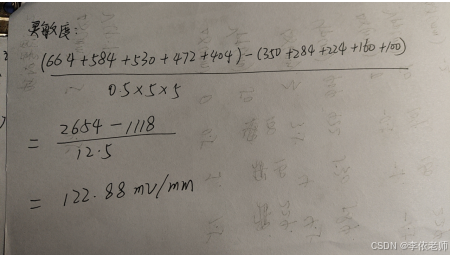 灵敏度:
(664+584+530+472+404)-(350+284+224+160+100)
0.5×5×5
= 2654-1118
12.5
= 122.88 mv/mm
CSDN @李依老师